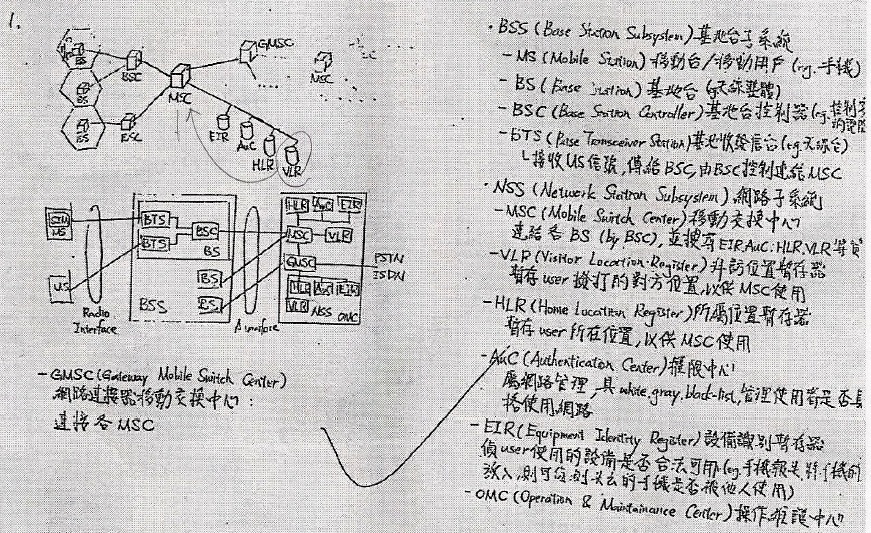 1.
BS
BS
BS
BSC
BSC
MSC
GMSC
MSC
EIR
AuC
HLR
VLR
MS
MS
BTS
BTS
BSC
BS
BS
BS
BSS
Radio
Interface
A
HLR
AuC
EIR
MSC
VLR
GMSC
HLR
AuC
EIR
VLR
NSS
OMC
PSTN
ISDN
-GMSC(Gateway Mobile Switch Center)
網路連接器移動交換中心:
連接各MSC
·BSS(Base Station Subsystem)基地台子系統
-MS(Mobile Station)移動台/移動用戶(eg.手機)
-BS(Base Station)基地台(eg.天線整體)
-BSC(Base Station Controller)基地台控制器(eg.控制
-BTS(Base Transceiver Station)基地收發信台(eg.天線台)
接收MS信號,傳給BSC,由BSC控制連給MSC
·NSS(Network Station Subsystem)網路子系統
-MSC(Mobile Switch Center)移動交換中心
連結各BS(by BSC),並接有EIR.AuC.HLR.VLR等
-VLR(Visitor Location Register)拜訪位置暫存器
暫存user撥打的對方位置,以供MSC使用
-HLR(Home Location Register)所屬位置暫存器
暫存user所在位置,以供MSC使用
-AuC(Authentication Center)權限中心
屬網路管理,具white.gray.black-list,管理使用者是否具
格使用網路
-EIR(Equipment Identity Register)設備識別暫存器
偵user使用的設備是否合法可用(eg.手機報失,將手機
放入,則可偵測失去的手機是否被他人使用)
-OMC(Operation & Maintainance Center)操作維護中心